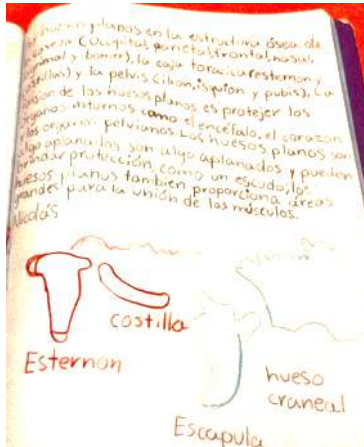 huesos planos en la estructura ósea de
(Occipital, parietal, frontal, nasal,
y bomer), la caja toraica (esternon y
costillas) y la pelvis (ilion, isquion y pubis). La
de los huesos planos es protejer los
organos internos como el encéfalo, el corazon
los organos pelvianos. Los huesos planos son
algo aplanados son algo aplanados y pueden
brindar protección, como un escudo; los
huesos planus tambien proporciona áreas
grandes para la unión de los músculos.
Nicolás
costilla
Esternon
hueso
craneal
Escapula